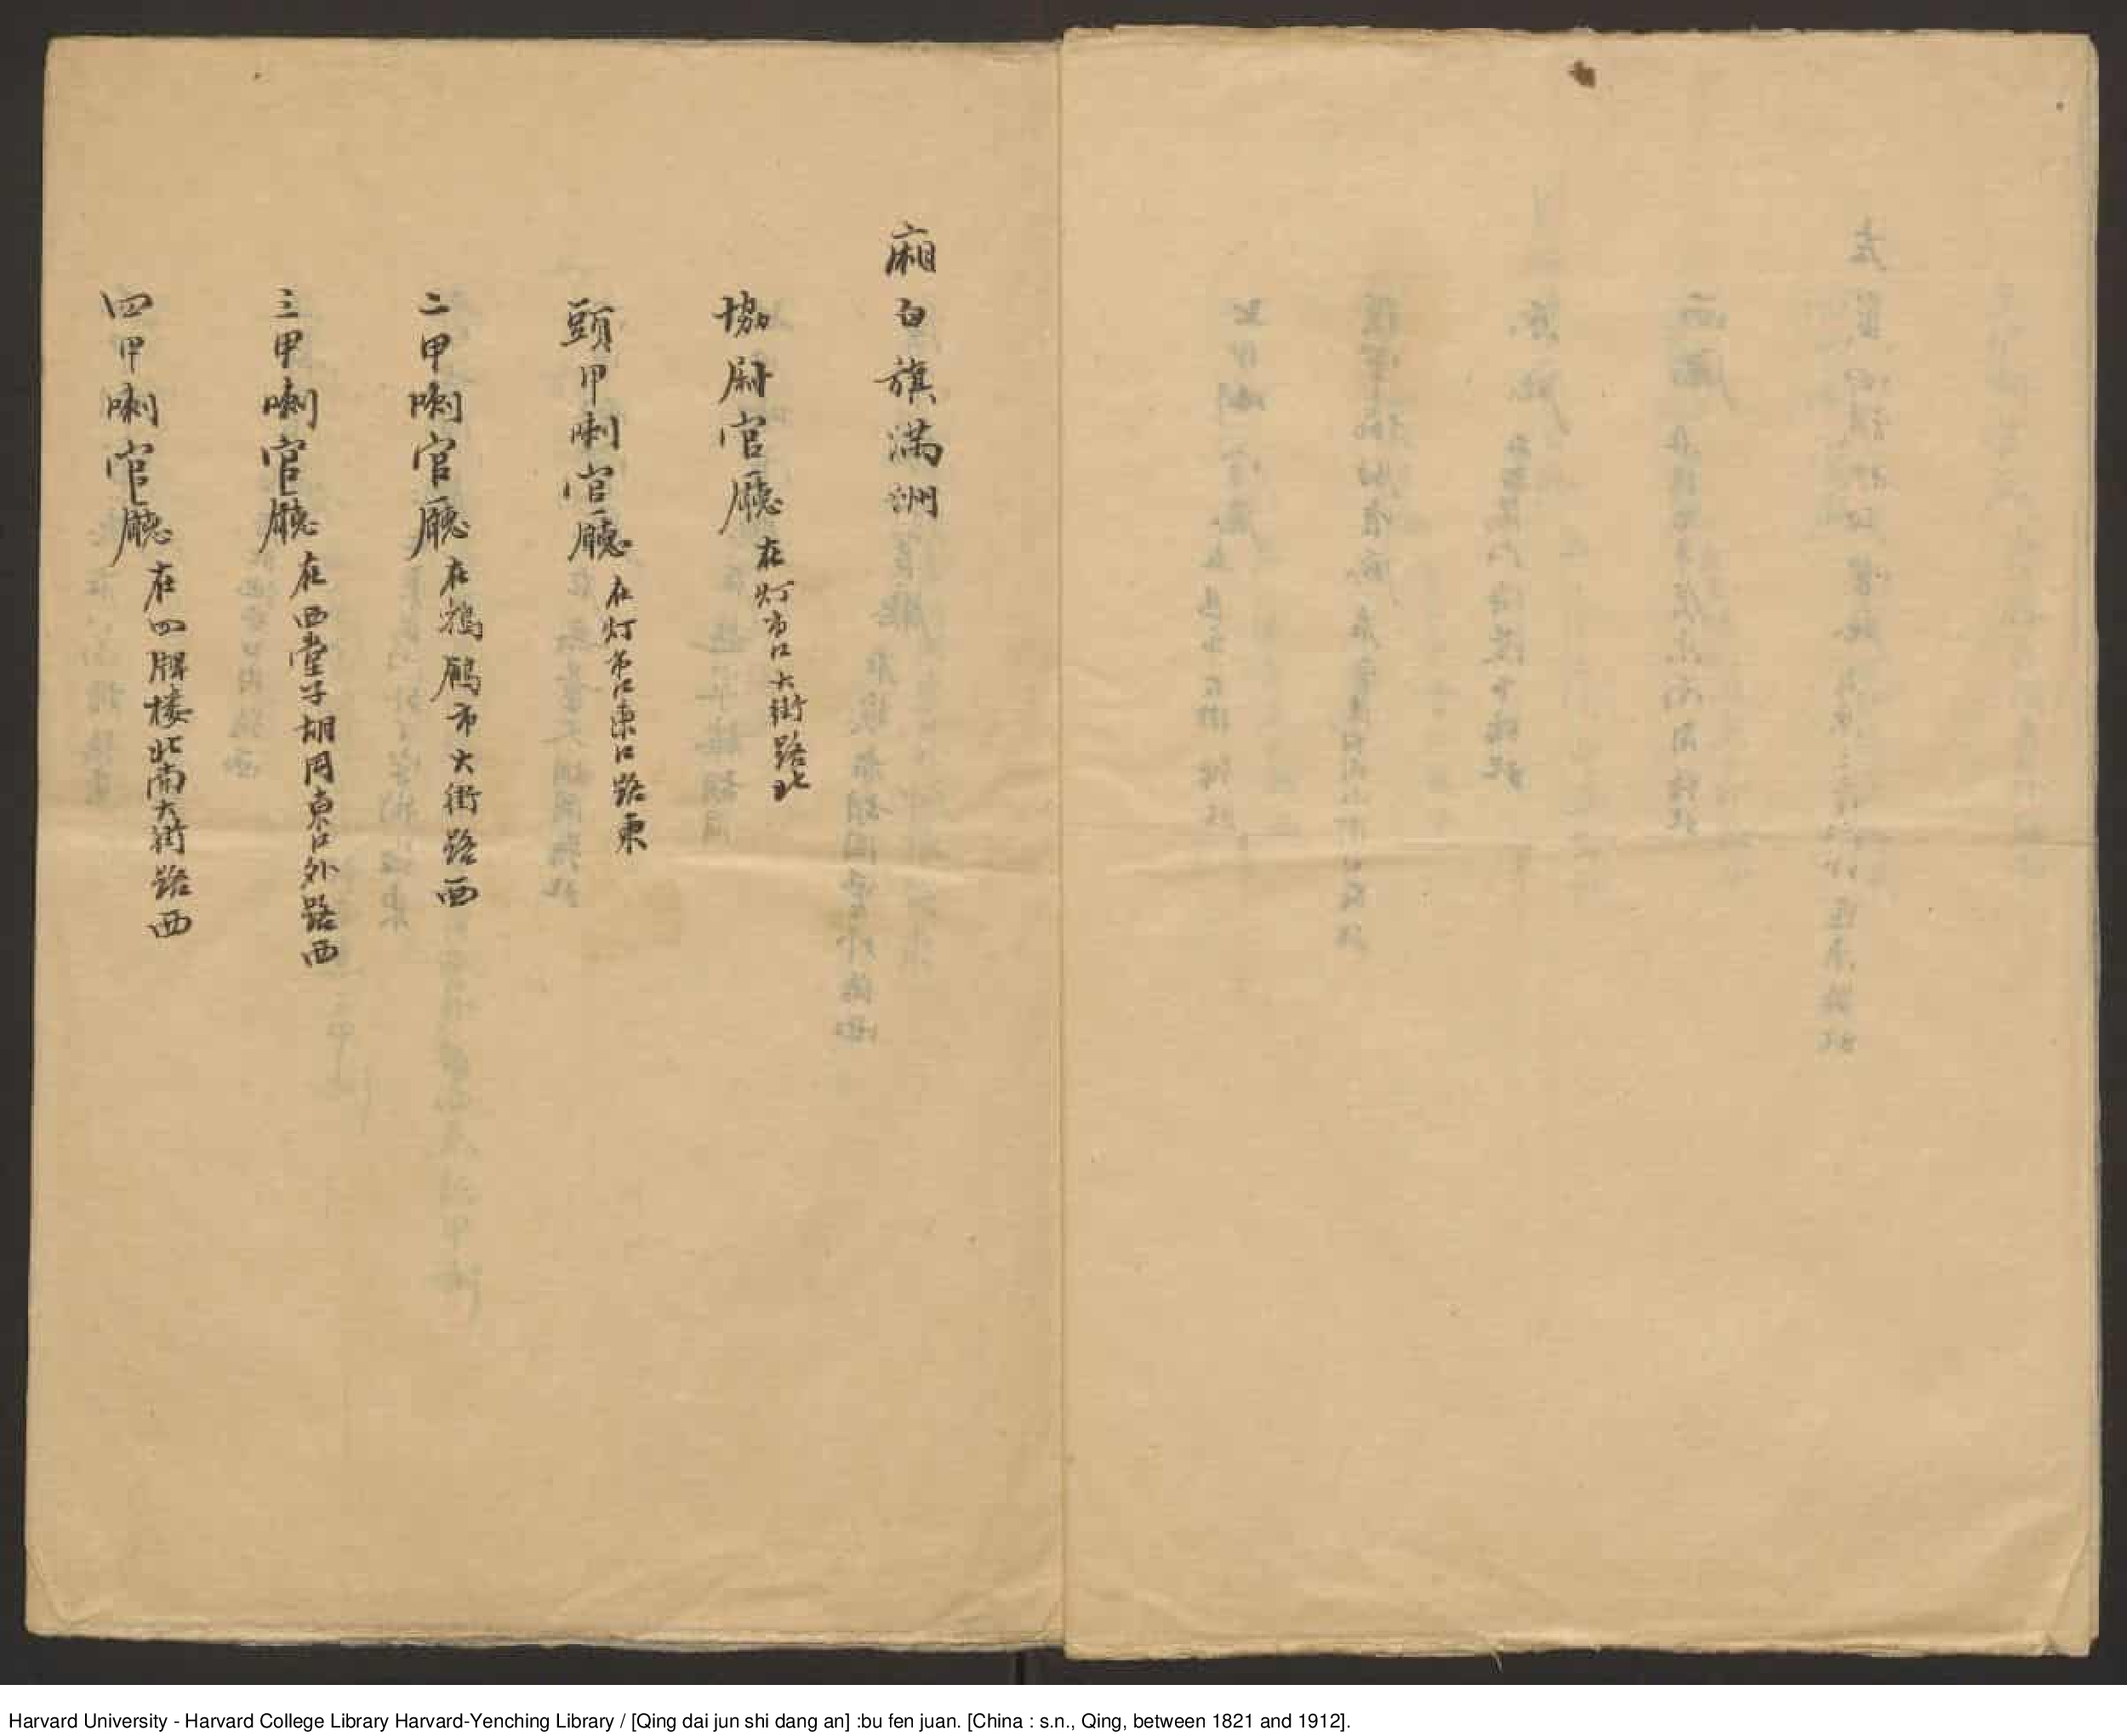 廂白旗滿洲
協尉官廳在灯市口大街路北
頭甲喇官廳在灯市口東口路東
二甲喇官廳在鵓鴿市大街路西
三甲喇官廳在西堂子胡同東口外路西
四甲喇官廳在四牌楼北南大街路西
Harvard University - Harvard College Library Harvard-Yenching Library / [Qing dai jun shi dang an] :bu fen juan. [China : s.n., Qing, between 1821 and 1912].